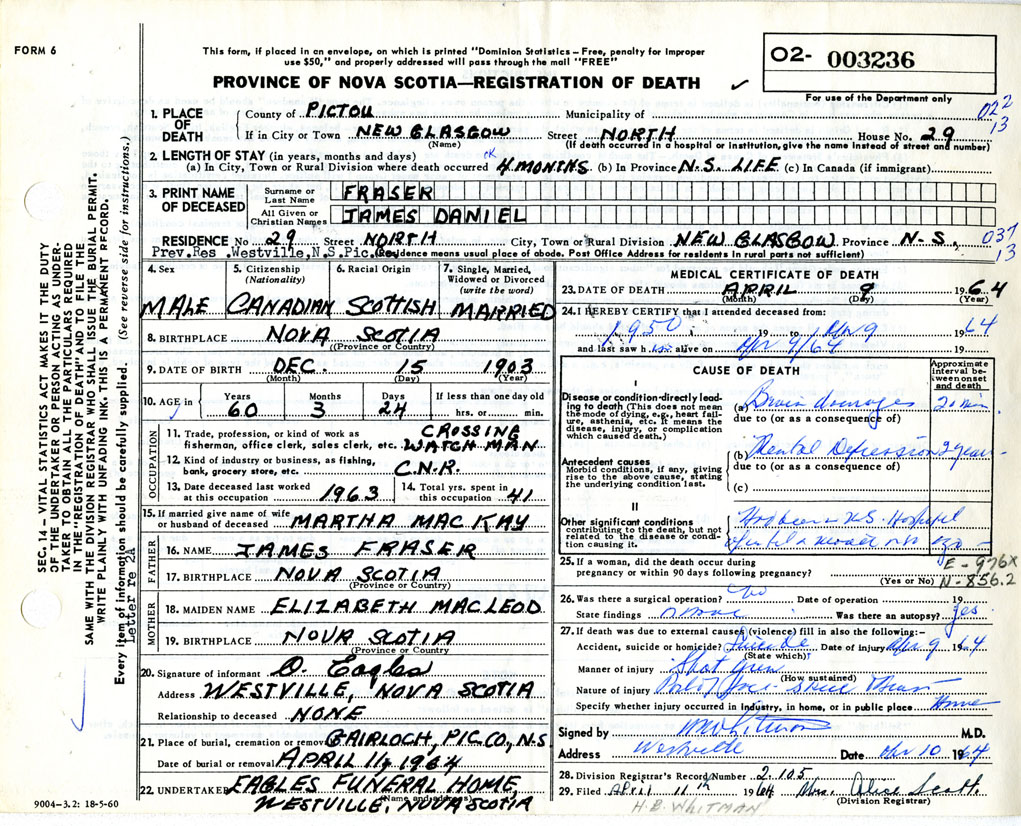 FORM 6
This form, if placed in an envelope, on which is printed "Dominion Statistics – Free, penalty for improper
use $50," and properly addressed will pass through the mail "FREE"
O2- 003236
PROVINCE OF NOVA SCOTIA—REGISTRATION OF DEATH ✓
For use of the Department only
1. PLACE OF DEATH County of PICTOU Municipality of 022
If in City or Town NEW GLASGOW Street NORTH House No. 29 13
(Name) (If death occurred in a hospital or institution, give the name instead of street and number)
2. LENGTH OF STAY (in years, months and days) ok
(a) In City, Town or Rural Division where death occurred 4 MONTHS (b) In Province N.S. LIFE (c) In Canada (if immigrant)
3. PRINT NAME OF DECEASED Surname or Last Name FRASER
All Given or Christian Names JAMES DANIEL
RESIDENCE No 29 Street NORTH City, Town or Rural Division NEW GLASGOW Province N-S, 037
Prev.Res .Westville,N.S.Pic. (Residence means usual place of abode. Post Office Address for residents in rural parts not sufficient) 13
4. Sex 5. Citizenship (Nationality) 6. Racial Origin 7. Single, Married, Widowed or Divorced (write the word)
MALE CANADIAN SCOTTISH MARRIED
8. BIRTHPLACE NOVA SCOTIA
(Province or Country)
9. DATE OF BIRTH DEC. 15 1903
(Month) (Day) (Year)
10. AGE in Years Months Days If less than one day old
60 3 24 hrs. or min.
OCCUPATION
11. Trade, profession, or kind of work as CROSSING
fisherman, office clerk, sales clerk, etc. WATCHMAN
12. Kind of industry or business, as fishing,
bank, grocery store, etc. C.N.R.
13. Date deceased last worked at this occupation 1963 14. Total yrs. spent in this occupation 41
15. If married give name of wife
or husband of deceased MARTHA MACKAY
FATHER
16. NAME JAMES FRASER
17. BIRTHPLACE NOVA SCOTIA
(Province or Country)
MOTHER
18. MAIDEN NAME ELIZABETH MACLEOD
19. BIRTHPLACE NOVA SCOTIA
(Province or Country)
20. Signature of informant D. Eagles
Address WESTVILLE, NOVA SCOTIA
Relationship to deceased NONE
21. Place of burial, cremation or removal GAIRLOCH, PIC.CO., N.S.
Date of burial or removal APRIL 11, 1964
22. UNDERTAKER EAGLES FUNERAL HOME,
(Name and address)
WESTVILLE, NOVA SCOTIA
9004-3.2: 18-5-60
MEDICAL CERTIFICATE OF DEATH
23. DATE OF DEATH APRIL 9 1964
(Month) (Day) (Year)
24. I HEREBY CERTIFY that I attended deceased from:
1950 19 to Apr 9 1964
and last saw him alive on Apr 9/64 19
CAUSE OF DEATH
Approximate interval between onset and death
Disease or condition directly leading to death (This does not mean the mode of dying, e.g., heart failure, asthenia, etc. It means the disease, injury, or complication which caused death.)
(a) Brain damage 20 min.
due to (or as a consequence of)
Antecedent causes
Morbid conditions, if any, giving rise to the above cause, stating the underlying condition last.
(b) Mental Depression 2 years
due to (or as a consequence of)
(c)
II
Other significant conditions contributing to the death, but not related to the disease or condition causing it.
Had been in N.S. Hospital
ago
25. If a woman, did the death occur during E-976X
pregnancy or within 90 days following pregnancy? N-856.2
(Yes or No)
26. Was there a surgical operation? No Date of operation 19
State findings Was there an autopsy? yes
27. If death was due to external causes (violence) fill in also the following:–
Accident, suicide or homicide? Suicide Date of injury Apr 9 1964
(State which)
Manner of injury Shot Gun
(How sustained)
Nature of injury
Specify whether injury occurred in industry, in home, or in public place Home
Signed by M.D.
Address Westville Date Apr 10 1964
28. Division Registrar's Record Number 2105
29. Filed April 11th 1964 Mrs. Alice Scott.
(Division Registrar)
H.B. WHITMAN
SEC. 14 – VITAL STATISTICS ACT MAKES IT THE DUTY
OF THE UNDERTAKER OR PERSON ACTING AS UNDER-
TAKER TO OBTAIN ALL THE PARTICULARS REQUIRED
IN THE "REGISTRATION OF DEATH" AND TO FILE THE
SAME WITH THE DIVISION REGISTRAR WHO SHALL ISSUE THE BURIAL PERMIT.
WRITE PLAINLY WITH UNFADING INK. THIS IS A PERMANENT RECORD.
Every item of information should be carefully supplied. (See reverse side for instructions.)
Letter re 2A